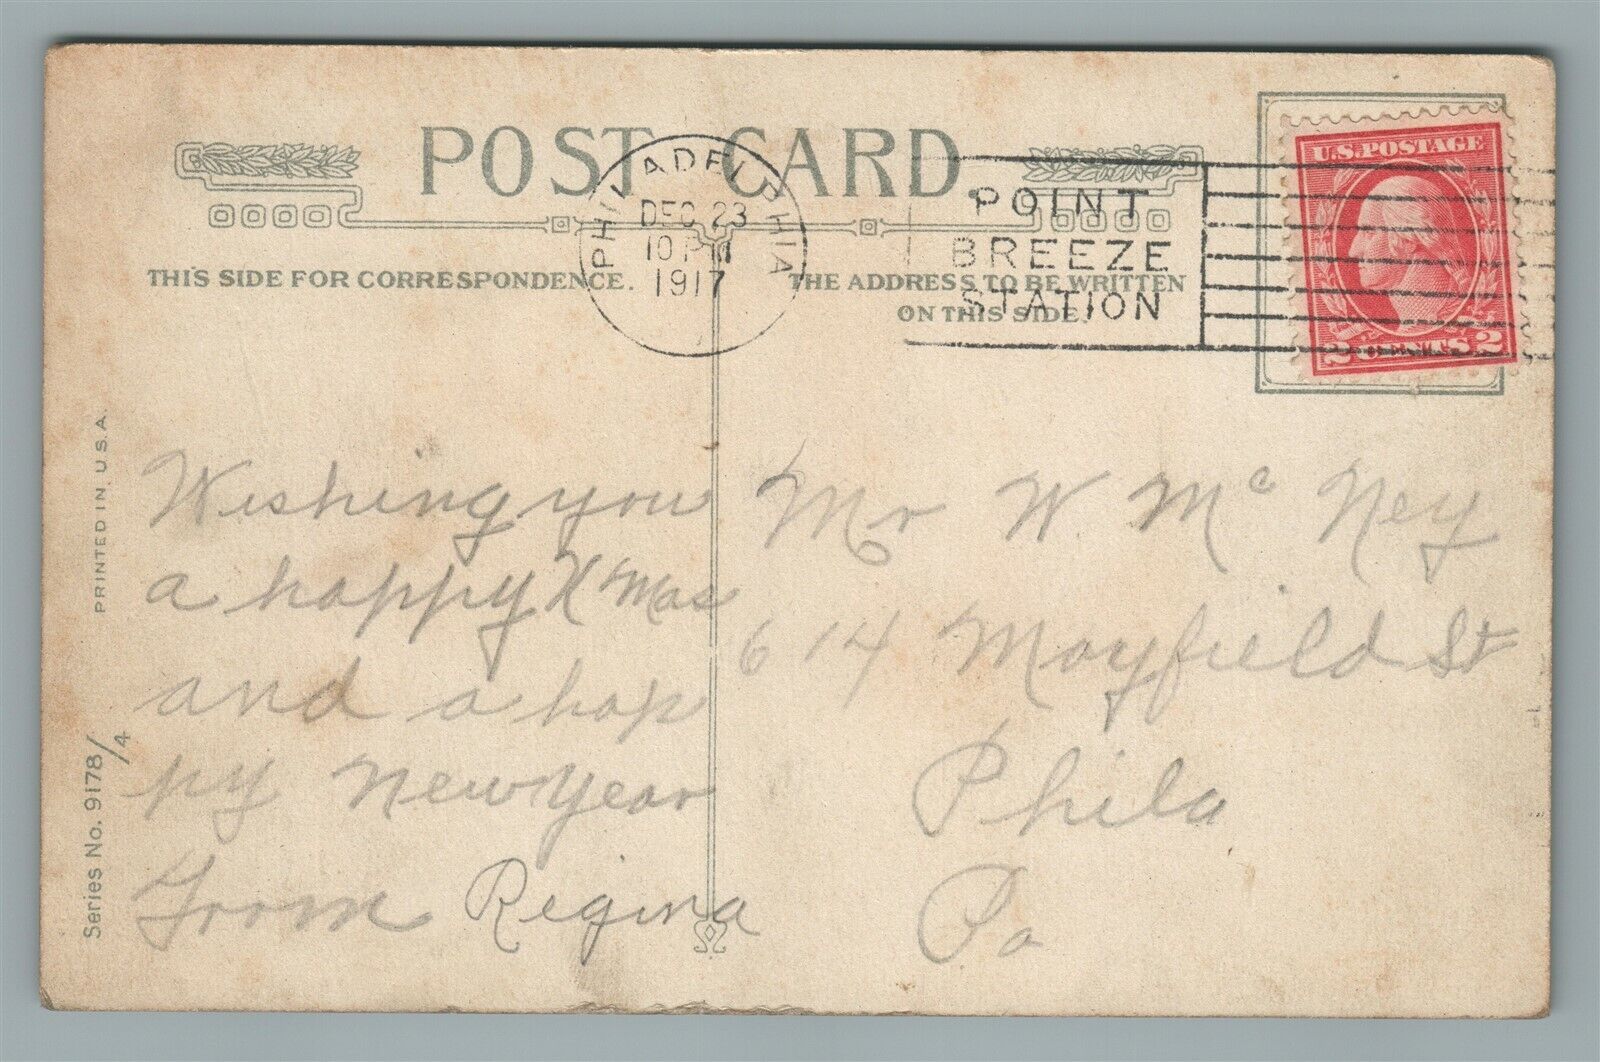 POST CARD
PHILADELPHIA
DEC 23
10 PM
1917
POINT
BREEZE
STATION
U.S. POSTAGE
2 CENTS 2
THIS SIDE FOR CORRESPONDENCE.
THE ADDRESS TO BE WRITTEN
ON THIS SIDE.
PRINTED IN U.S.A.
Series No. 9178/4
Wishing you
a happy X Mas
and a hap
py New Year
From Regina
Mr W. Mc Ney
614 Mayfield St
Phila
Pa